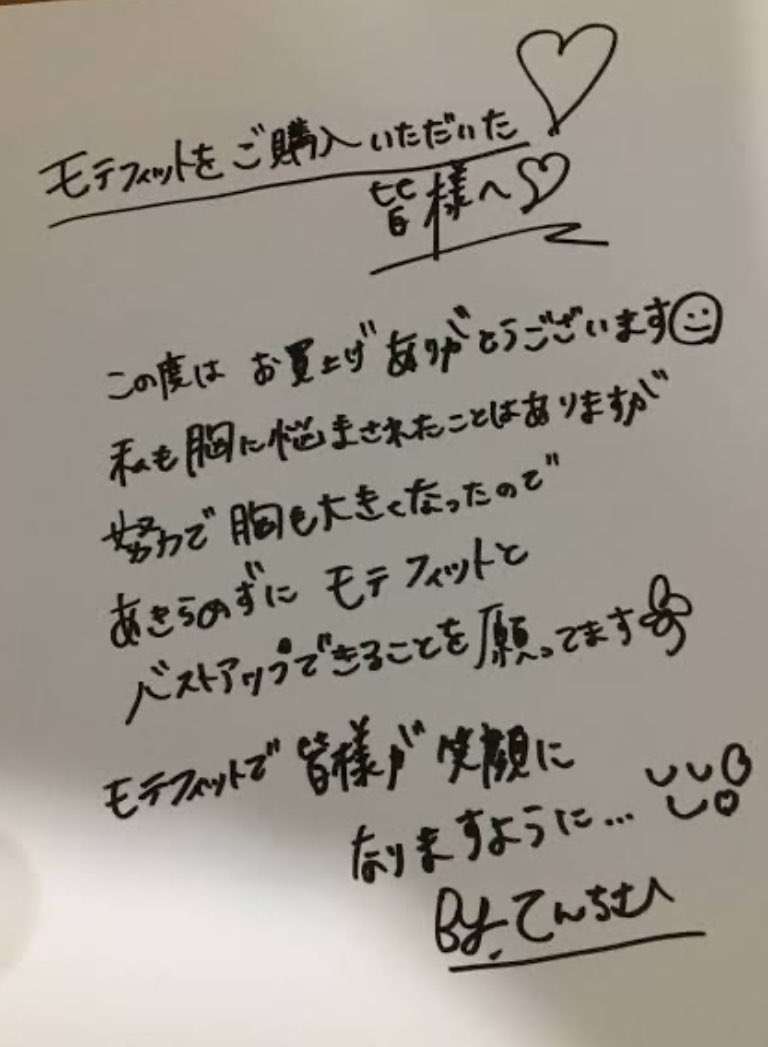 モテフィットをご購入いただいた♡
皆様へ♡
この度は お買上げありがとうございます
私も胸に悩まされたことはありますが
努力で胸も大きくなったので
あきらめずに モテフィットと
バストアップできることを願ってます
モテフィットで皆様が笑顔に
なりますように...
By.てんちむ